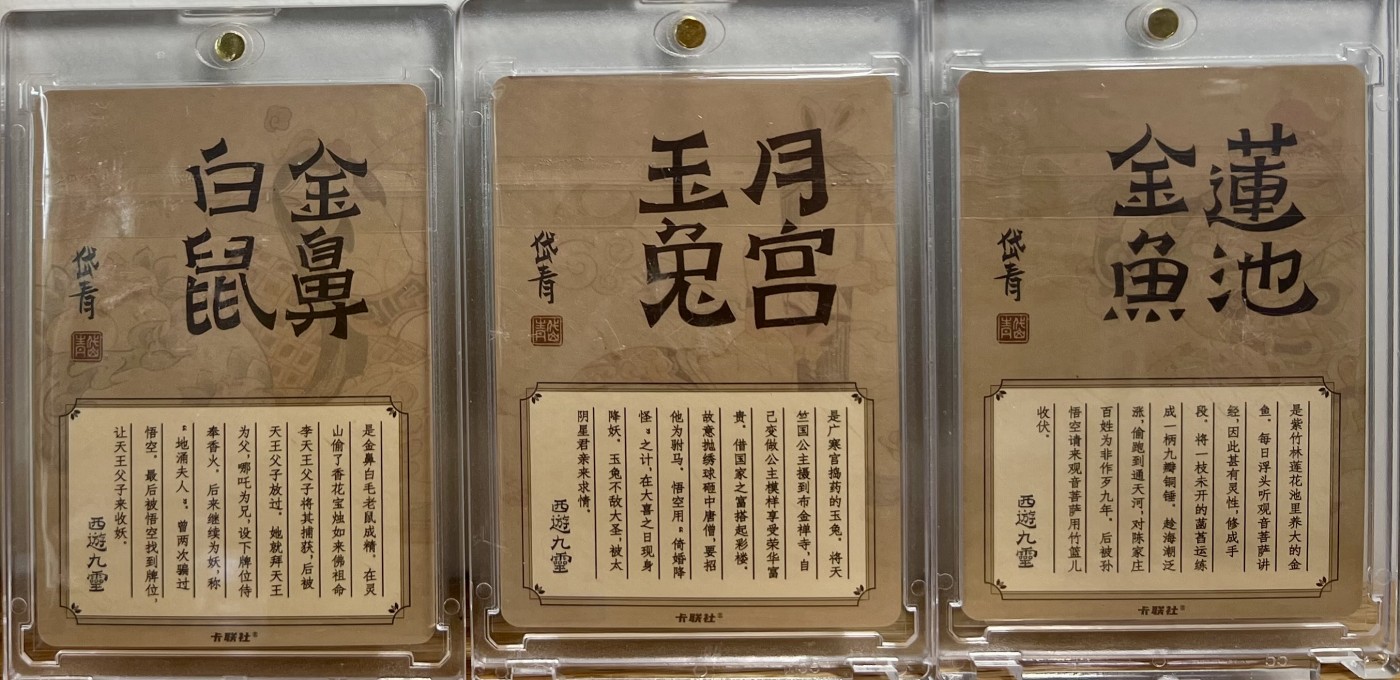 金鼻
白鼠
岱青
岱青
是金鼻白毛老鼠成精，在灵
山偷了香花宝烛如来佛祖命
李天王父子将其捕获，后被
天王父子放过，她就拜天王
为父，哪吒为兄，设下牌位侍
奉香火，后来继续为妖，称
“地涌夫人”。曾两次骗过
悟空，最后被悟空找到牌位，
让天王父子来收妖。
西遊九靈
卡联社®
月宫
玉兔
岱青
岱青
是广寒宫捣药的玉兔，将天
竺国公主摄到布金禅寺，自
己变做公主模样享受荣华富
贵，借国家之富搭起彩楼，
故意抛绣球砸中唐僧，要招
他为驸马。悟空用“倚婚降
怪”之计，在大喜之日现身
降妖，玉兔不敌大圣，被太
阴星君亲来求情。
西遊九靈
卡联社®
蓮池
金魚
岱青
岱青
是紫竹林莲花池里养大的金
鱼，每日浮头听观音菩萨讲
经，因此甚有灵性，修成手
段，将一枝未开的菡萏运练
成一柄九瓣铜锤，趁海潮泛
涨，偷跑到通天河，对陈家庄
百姓为非作歹九年，后被孙
悟空请来观音菩萨用竹篮儿
收伏。
西遊九靈
卡联社®